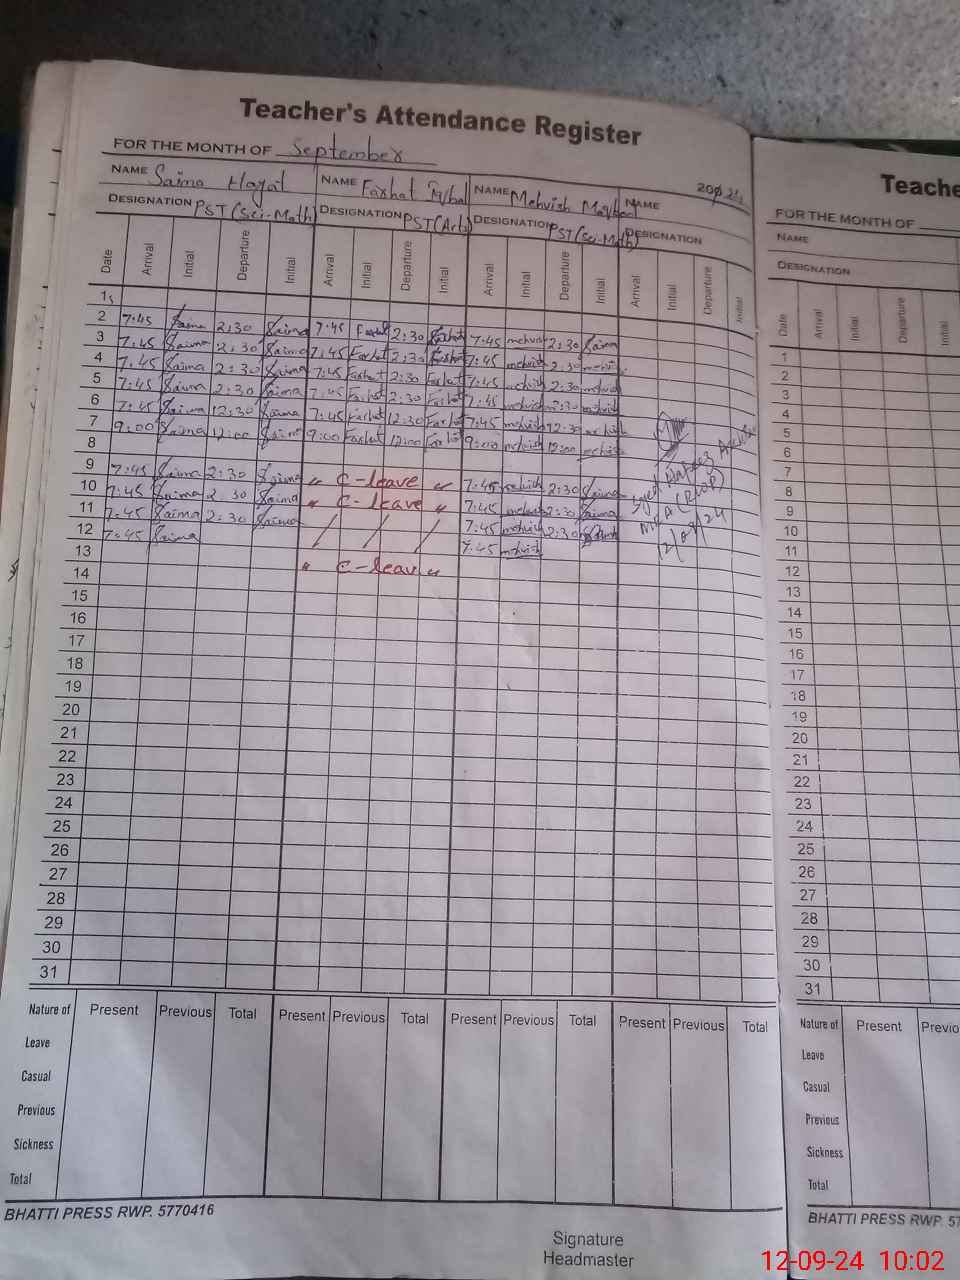 Teacher's Attendance Register
FOR THE MONTH OF September
NAME Saima Hayat NAME Farhat Iqbal NAME Mehvish Maqbool NAME
DESIGNATION PST(Sci-Math) DESIGNATION PST(Arts) DESIGNATION PST(Sci-Math) DESIGNATION
Date Arrival Initial Departure Initial Arrival Initial Departure Initial Arrival Initial Departure Initial Arrival Initial Departure Initial
1
2 7:45 Saima 2:30 Saima 7:45 Farhat 2:30 Farhat 7:45 mehvish 2:30 Saima
3 7:45 Saima 2:30 Saima 7:45 Farhat 2:30 Farhat 7:45 mehvish 2:30 mehvish
4 7:45 Saima 2:30 Saima 7:45 Farhat 2:30 Farhat 7:45 mehvish 2:30 mehvish
5 7:45 Saima 2:30 Saima 7:45 Farhat 2:30 Farhat 7:45 mehvish 2:30 mehvish
6 7:45 Saima 12:30 Saima 7:45 Farhat 12:30 Farhat 7:45 mehvish 12:30 mehvish
7 9:00 Saima 12:00 Saima 9:00 Farhat 12:00 Farhat 9:00 mehvish 12:00 mehvish
8
9 7:45 Saima 2:30 Saima " C-leave " 7:45 mehvish 2:30 Saima
10 7:45 Saima 2:30 Saima " C-leave " 7:45 mehvish 2:30 Saima
11 7:45 Saima 2:30 Saima / / / 7:45 mehvish 2:30
12 7:45 Saima " C-leave " 7:45 mehvish
13
14
15
16
17
18
19
20
21
22
23
24
25
26
27
28
29
30
31
Syed Hafeez
MEA (RWP)
12/09/24
Nature of Present Previous Total Present Previous Total Present Previous Total Present Previous Total
Leave
Casual
Previous
Sickness
Total
BHATTI PRESS RWP. 5770416
Signature
Headmaster
Teache
FOR THE MONTH OF
NAME
DESIGNATION
Date Arrival Initial Departure Initial
1
2
3
4
5
6
7
8
9
10
11
12
13
14
15
16
17
18
19
20
21
22
23
24
25
26
27
28
29
30
31
Nature of Present Previo
Leave
Casual
Previous
Sickness
Total
BHATTI PRESS RWP. 57
12-09-24 10:02